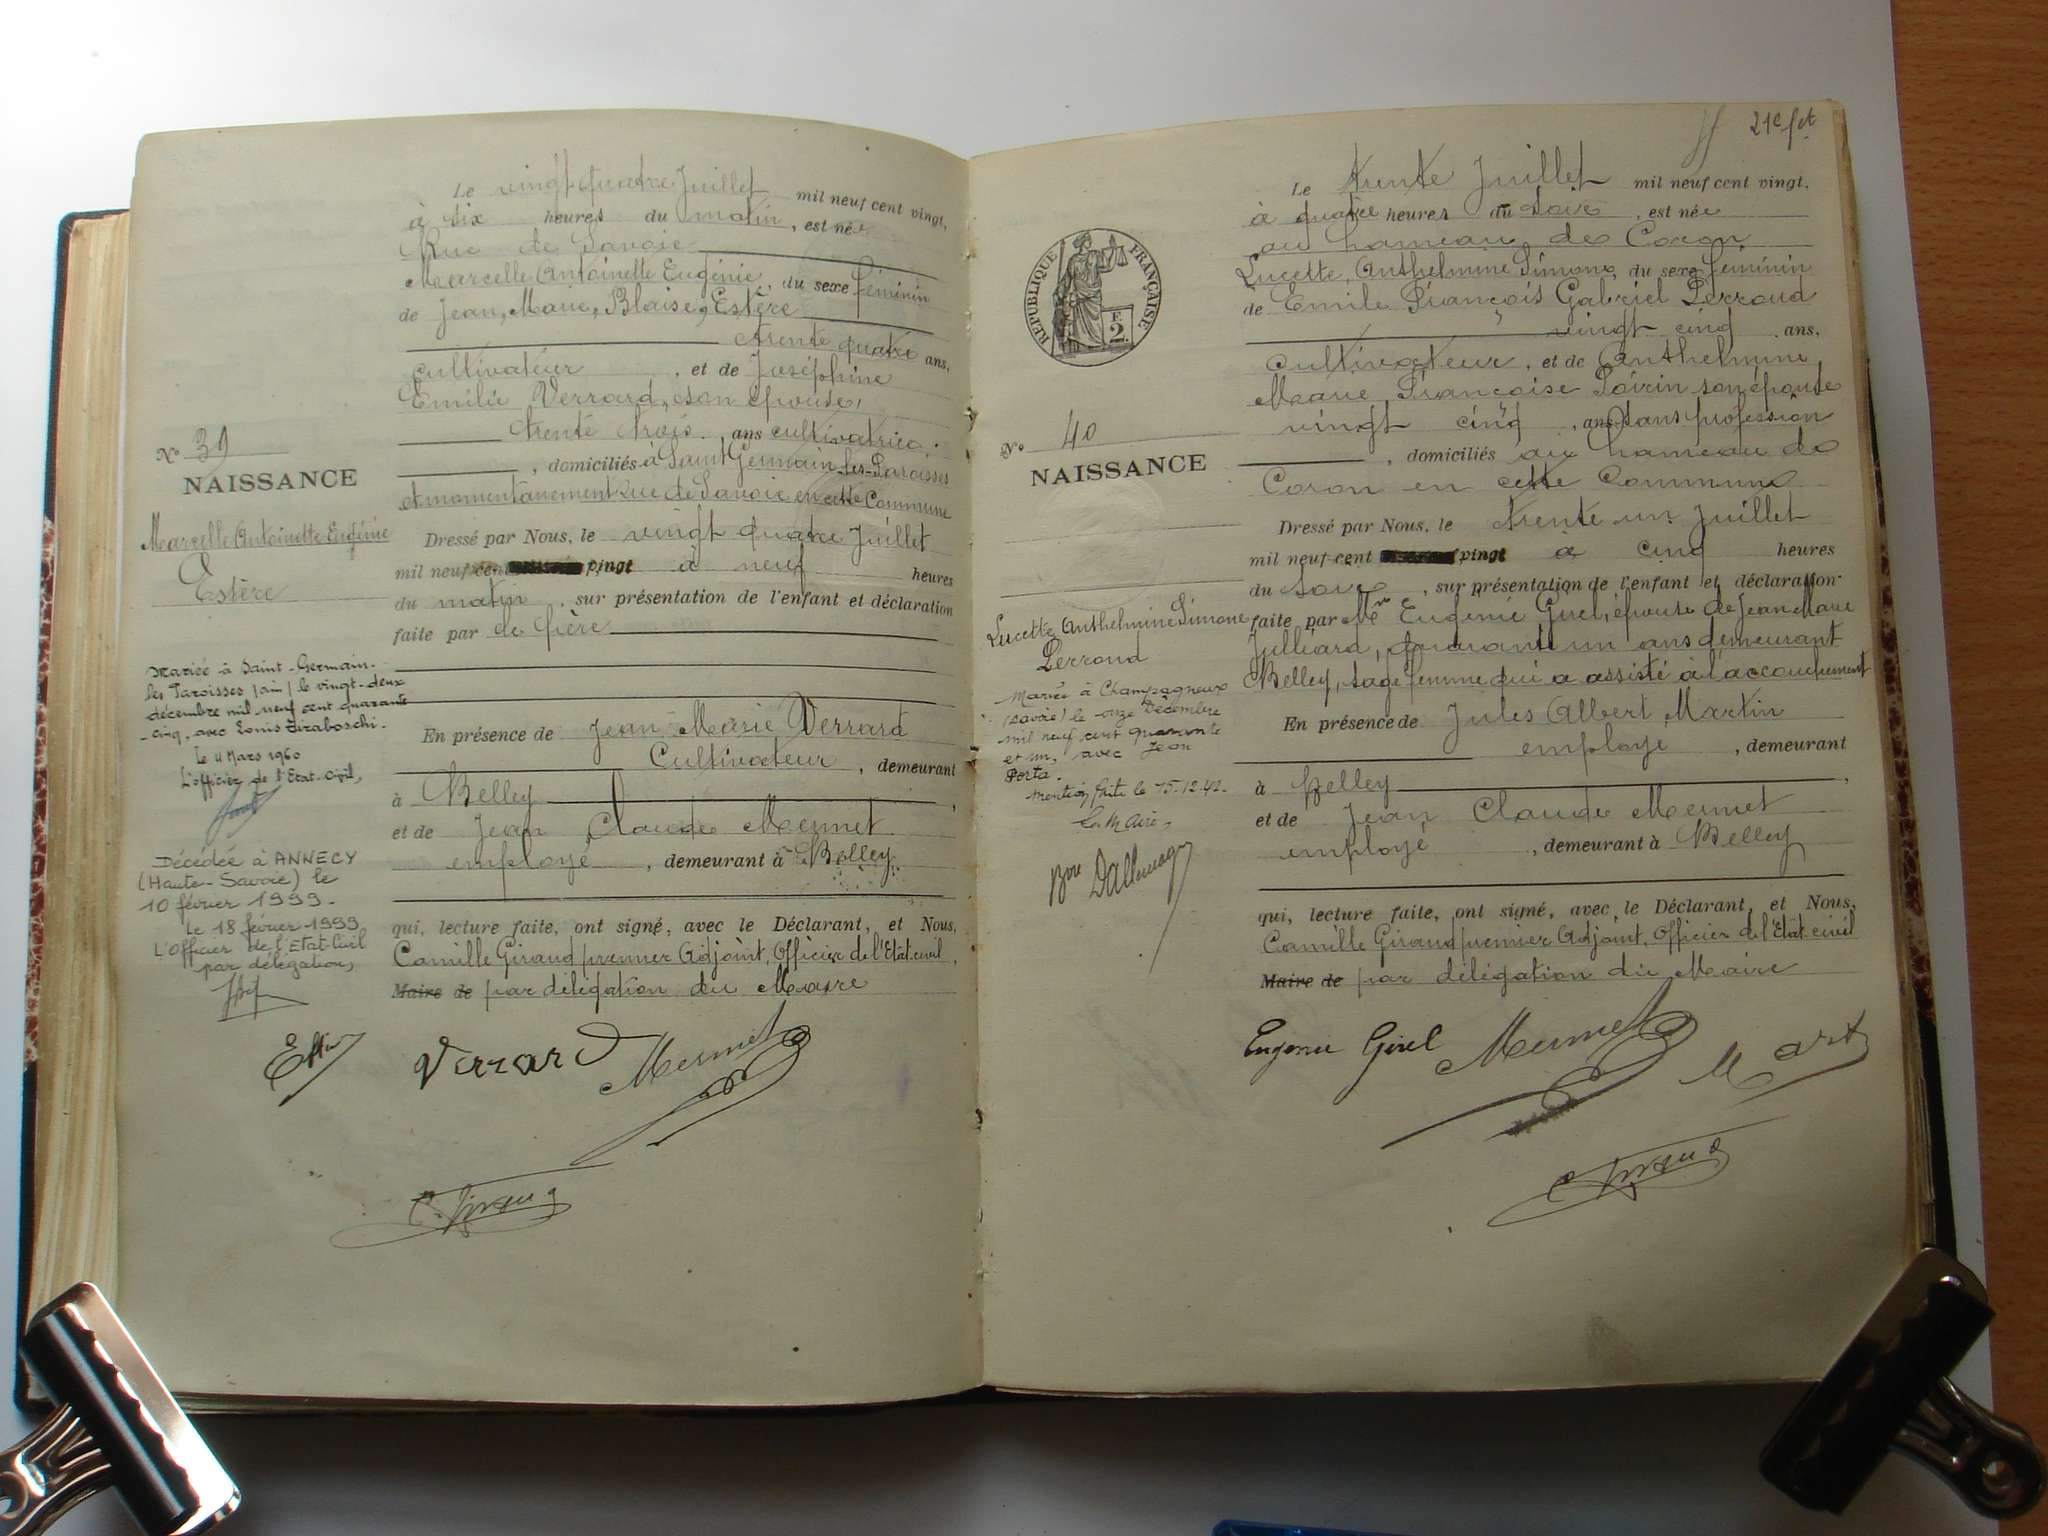 Le vingt quatre Juillet mil neuf cent vingt,
à six heures du matin, est née
Rue de Savoie
Marcelle Antoinette Eugénie, du sexe féminin
de Jean, Marie, Blaise, Estère
trente quatre ans,
cultivateur, et de Joséphine
Emilie Verrard, son épouse,
trente trois, ans cultivatrice.
, domiciliés à Saint Germain les Paroisses
et momentanement Rue de Savoie en cette Commune
Dressé par Nous, le vingt quatre Juillet
mil neuf cent vingt à neuf heures
du matin, sur présentation de l'enfant et déclaration
faite par de père
En présence de Jean Marie Verrard
Cultivateur, demeurant
à Belley,
et de Jean Claude Mermet
employé, demeurant à Belley
qui, lecture faite, ont signé, avec le Déclarant, et Nous,
Camille Giraud premier Adjoint, Officier de l'Etat-civil,
Maire de par délégation du Maire
N° 39
NAISSANCE
Marcelle Antoinette Eugénie
Estère
Mariée à Saint-Germain-
les Paroisses (ain) le vingt-deux
décembre mil neuf cent quarante
-cinq, avec Louis Tiraboschi-
Le 4 Mars 1960
L'officier de l'Etat-Civil,
Décédée à ANNECY
(Haute-Savoie) le
10 février 1999-
Le 18 février 1999
L'Officier de l'Etat-Civil
par délégation,
Verrard Mermet
C. Giraud
21e fet
Le trente Juillet mil neuf cent vingt,
à quatre heures du soir, est née
au hameau de Coron
Lucette, Anthelmine Simone, du sexe féminin
de Emile François Gabriel Perroud
vingt cinq ans,
cultivateur, et de Anthelmine
Marie Françoise Poirin son épouse
vingt cinq, ans sans profession
, domiciliés au hameau de
Coron en cette Commune
Dressé par Nous, le trente un Juillet
mil neuf cent vingt à cinq heures
du soir, sur présentation de l'enfant et déclaration
faite par Me Eugénie Girel, épouse de Jean Marie
Julliard, quarante un ans demeurant
Belley, sage femme qui a assisté à l'accouchement
En présence de Jules Albert Martin
employé, demeurant
à Belley,
et de Jean Claude Mermet
employé, demeurant à Belley
qui, lecture faite, ont signé, avec le Déclarant, et Nous,
Camille Giraud premier Adjoint, Officier de l'Etat-civil
Maire de par délégation du Maire
RÉPUBLIQUE FRANÇAISE
F
2
N° 40
NAISSANCE
Lucette Anthelmine Simone
Perroud
Mariée à Champagneux
(Savoie) le onze Décembre
mil neuf cent quarante
et un, avec Jean
Porta.
Mention faite le 15.12.42.
Le Maire,
Eugenie Girel Mermet Mart
C Giraud